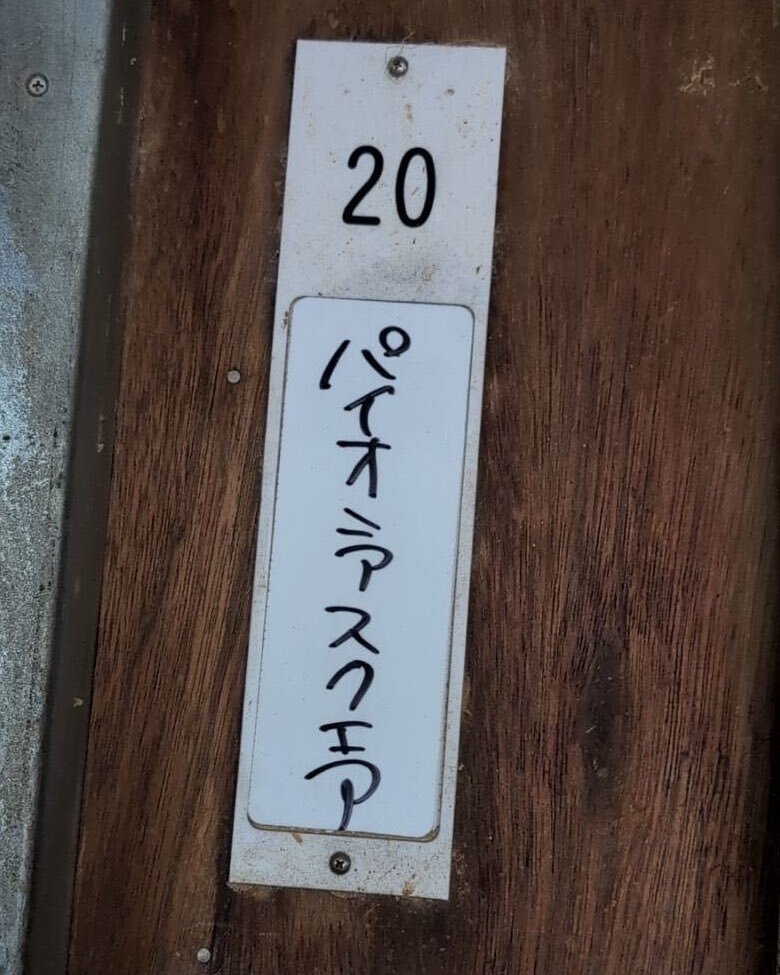 20
パイオニアスクエア